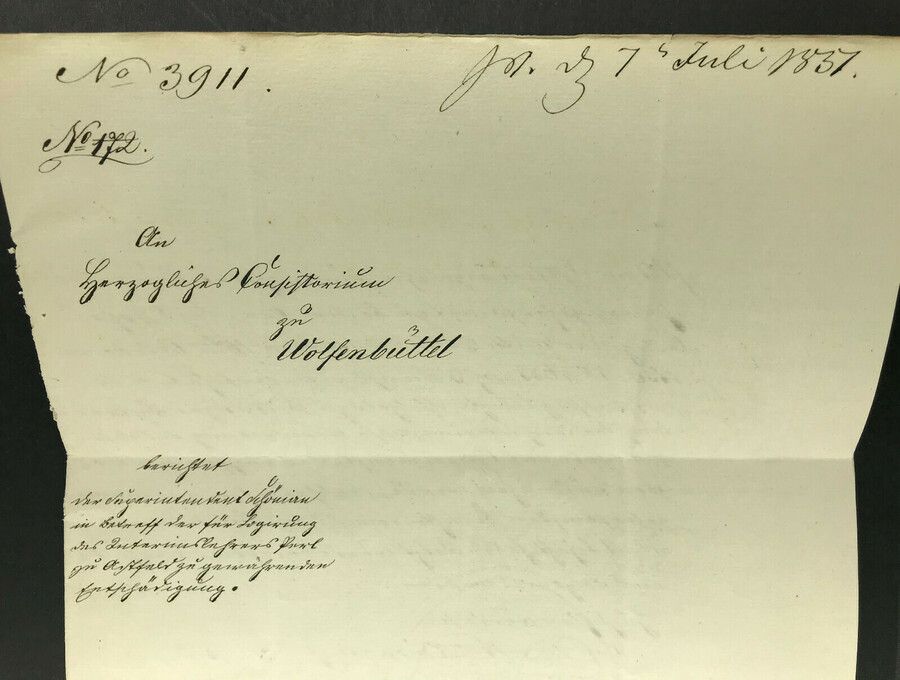 No 3911.
pr. d. 7t Juli 1851.
No 172.
An
Herzogliches Consistorium
zu
Wolfenbüttel
berichtet
der Superintendent Schönian
in Betreff der für Logirung
des Interimslehrers Perl
zu Astfeld zu gewährenden
Entschädigung.